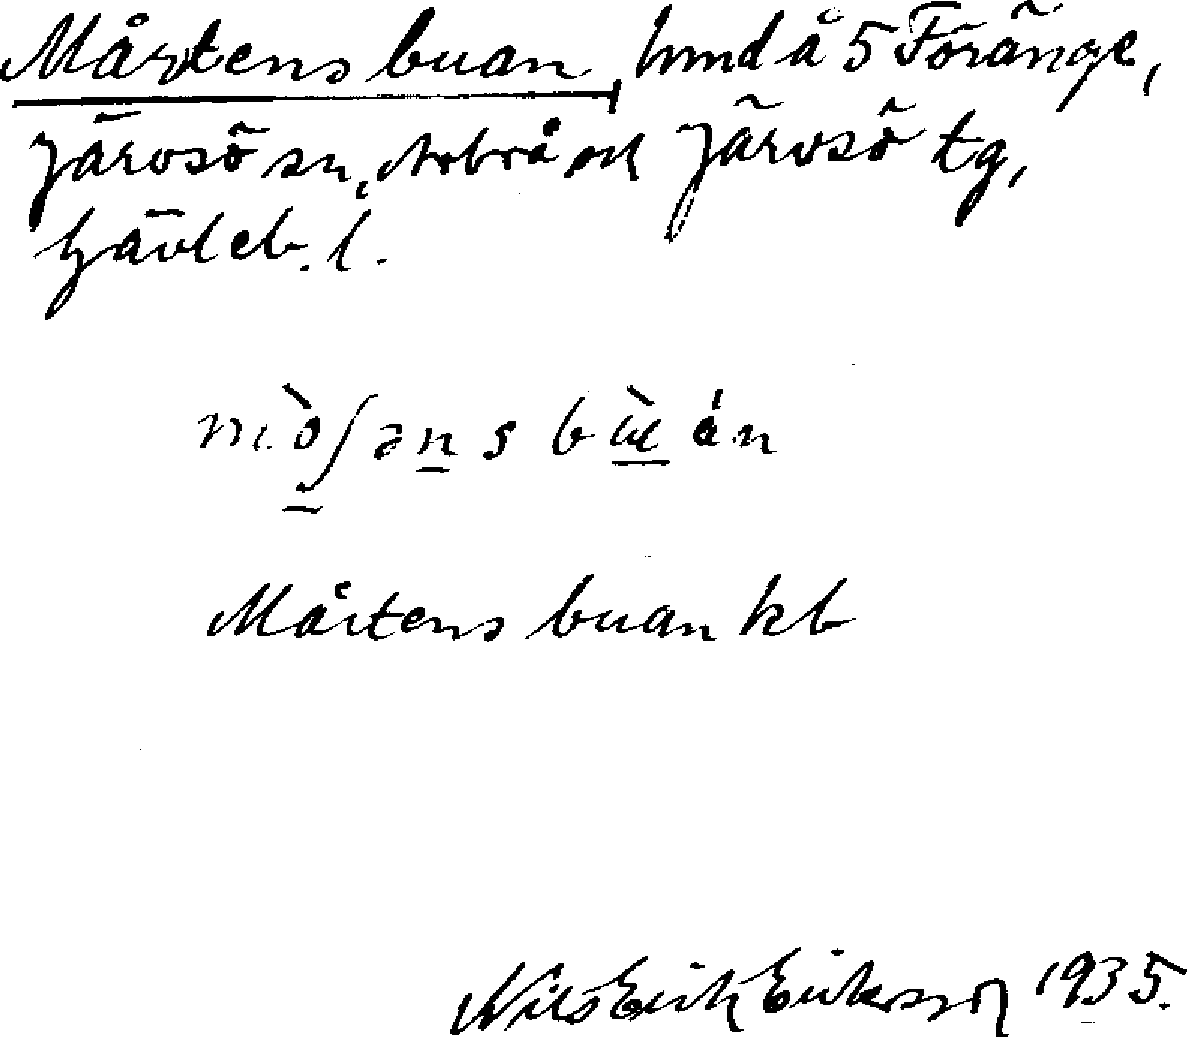 Mårtensbuan, lund å 5 Föränge,
Järvsö sn, Arbrå och Järvsö tg,
Gävleb. l.
Mårtensbuan kb
Nils Erik Eriksson 1935.